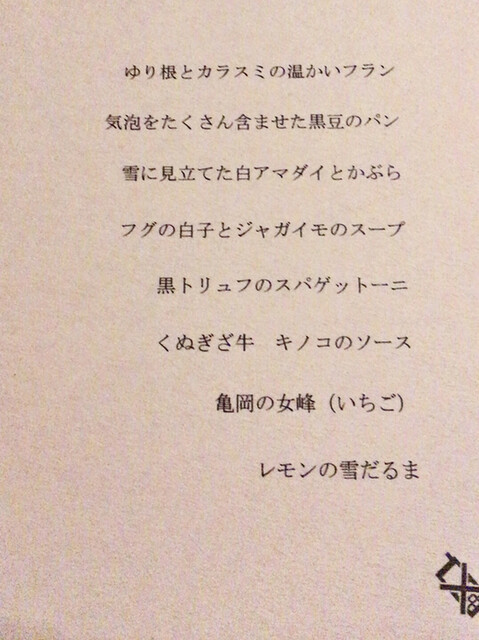 ゆり根とカラスミの温かいフラン
気泡をたくさん含ませた黒豆のパン
雪に見立てた白アマダイとかぶら
フグの白子とジャガイモのスープ
黒トリュフのスパゲットーニ
くぬぎざ牛　キノコのソース
亀岡の女峰（いちご）
レモンの雪だるま